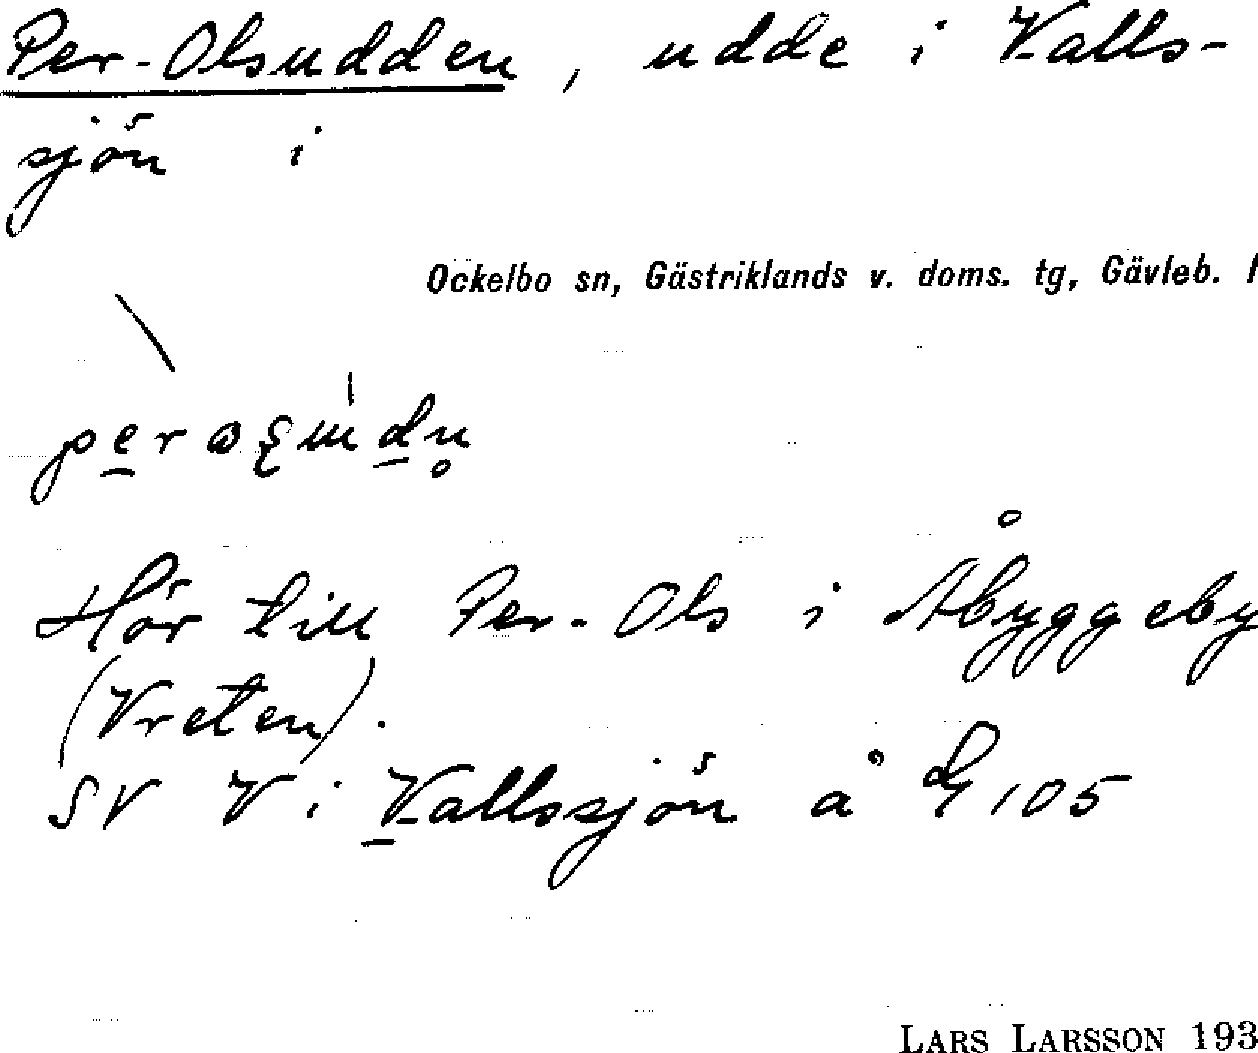 Per-Olsudden, udde i Valls-
sjön i
Ockelbo sn, Gästriklands v. doms. tg, Gävleb.
Hör till Per-Ols i Åbyggeby
(Vreten).
SV V i Vallssjön å G 105
LARS LARSSON 193